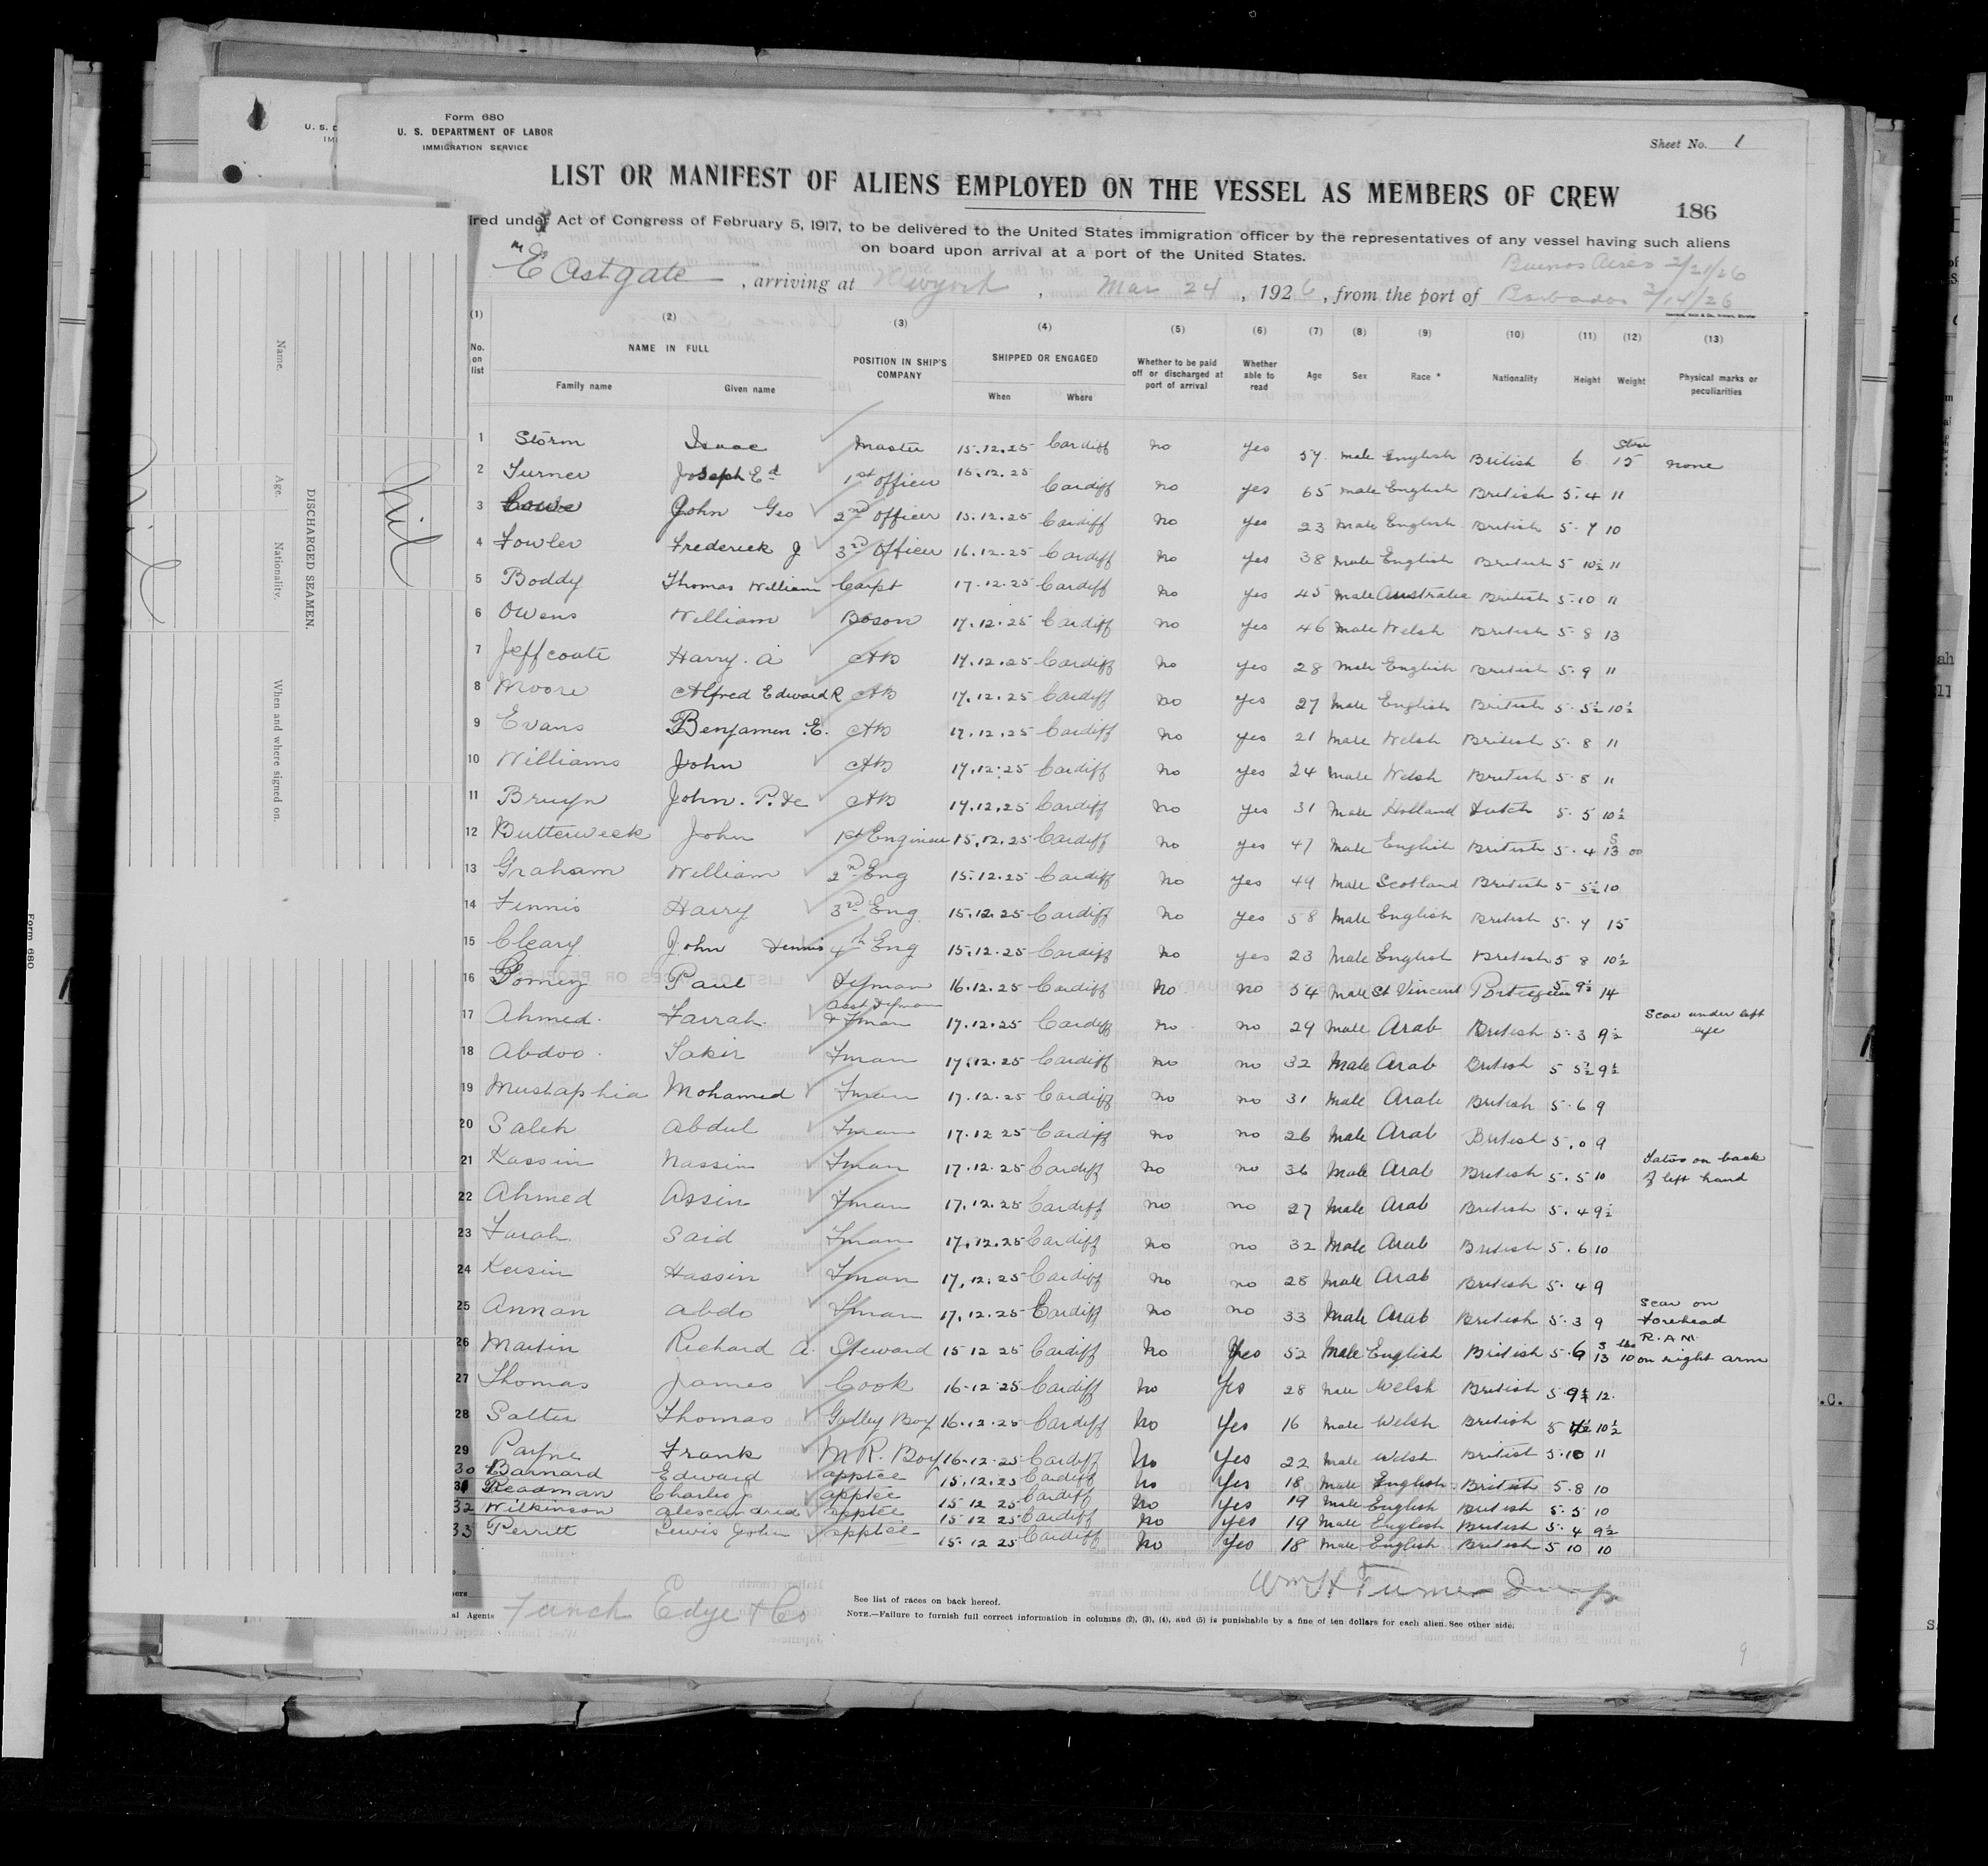 Form 680
U. S. DEPARTMENT OF LABOR
IMMIGRATION SERVICE
Sheet No. 1
LIST OR MANIFEST OF ALIENS EMPLOYED ON THE VESSEL AS MEMBERS OF CREW
186
ired under Act of Congress of February 5, 1917, to be delivered to the United States immigration officer by the representatives of any vessel having such aliens
on board upon arrival at a port of the United States.
Buenos Aires 2/21/26
Eastgate, arriving at Newyork, Mar 24, 1926, from the port of Barbados 3/14/26
(1) (2) (3) (4) (5) (6) (7) (8) (9) (10) (11) (12) (13)
No. on list NAME IN FULL POSITION IN SHIP'S COMPANY SHIPPED OR ENGAGED Whether to be paid off or discharged at port of arrival Whether able to read Age Sex Race * Nationality Height Weight Physical marks or peculiarities
Family name Given name When Where
1 Storm Isaac Master 15.12.25 Cardiff no Yes 57 male English British 6 Stone 15 none
2 Turner Joseph Ed 1st officer 15.12.25 Cardiff no yes 65 male English British 5.4 11
3 John Geo 2nd officer 15.12.25 Cardiff no Yes 23 Male English British 5.7 10
4 Fowler Frederick J 3rd officer 16.12.25 Cardiff no Yes 38 Male English British 5 10½ 11
5 Boddy Thomas William Carpt 17.12.25 Cardiff no yes 45 Male Australia British 5.10 11
6 Owens William Boson 17.12.25 Cardiff no Yes 46 Male Welsh British 5.8 13
7 Jeffcoate Harry. A AB 17.12.25 Cardiff no yes 28 Male English British 5.9 11
8 Moore Alfred Edward R AB 17.12.25 Cardiff no Yes 27 Male English British 5.5½ 10½
9 Evans Benjamen .E. AB 17.12.25 Cardiff no yes 21 Male Welsh British 5.8 11
10 Williams John AB 17.12.25 Cardiff no yes 24 Male Welsh British 5.8 11
11 Bruyn John. P. de AB 17.12.25 Cardiff no yes 31 Male Holland Dutch 5.5 10½
12 Butterweek John 1st Engineer 15.12.25 Cardiff no yes 47 Male English British 5.4 13 00
13 Graham William 2nd Eng 15.12.25 Cardiff no yes 49 Male Scotland British 5 5½ 10
14 Finnis Harry 3rd Eng. 15.12.25 Cardiff no yes 58 Male English British 5.7 15
15 Cleary John Dennis 4th Eng 15.12.25 Cardiff no yes 23 Male English British 5 8 10½
16 Gomez Paul Dkman 16.12.25 Cardiff No no 54 Male St Vincent 5 9½ 14
17 Ahmed. Farrah. & Fman 17.12.25 Cardiff no no 29 Male Arab British 5.3 9½ Scar under left eye
18 Abdoo. Sakir Fman 17.12.25 Cardiff no no 32 Male Arab British 5 5½ 9½
19 Mustaphia Mohamed Fman 17.12.25 Cardiff no no 31 Male Arab British 5.6 9
20 Saleh Abdul Fman 17.12.25 Cardiff no no 26 Male Arab British 5.0 9
21 Kassim Nassim Fman 17.12.25 Cardiff no no 36 Male Arab British 5.5 10 Tatoo on back of left hand
22 Ahmed Assin Fman 17.12.25 Cardiff no no 27 Male Arab British 5.4 9½
23 Farah Said Fman 17.12.25 Cardiff no no 32 Male Arab British 5.6 10
24 Kasin Hassin Fman 17.12.25 Cardiff no no 28 Male Arab British 5.4 9
25 Annan Abdo Fman 17.12.25 Cardiff no no 33 Male Arab British 5.3 9 Scar on forehead
26 Martin Richard A. Steward 15 12 25 Cardiff No Yes 52 Male English British 5.6 13 10 lbs R.A.M. on right arm
27 Thomas James Cook 16-12-25 Cardiff No Yes 28 Male Welsh British 5 9½ 12.
28 Salter Thomas Galley Boy 16-12-25 Cardiff No Yes 16 Male Welsh British 5 10½
29 Payne Frank M R. Boy 16-12-25 Cardiff No Yes 22 Male Welsh British 5.10 11
30 Barnard Edward apptce 15.12.25 Cardiff No Yes 18 Male English British 5.8 10
31 Readman Charles J apptce 15 12 25 Cardiff No Yes 19 Male English British 5.5 10
32 Wilkinson Alexandria apptce 15 12 25 Cardiff No Yes 19 Male English British 5.4 9½
33 Perritt Lewis John apptce 15.12 25 Cardiff No Yes 18 Male English British 5 10 10
Wm H Turner
al Agents Funch Edye & Co
See list of races on back hereof.
NOTE.—Failure to furnish full correct information in columns (2), (3), (4), and (5) is punishable by a fine of ten dollars for each alien. See other side.
9
DISCHARGED SEAMEN.
Name. Age. Nationality. When and where signed on.
Nil
Form 680